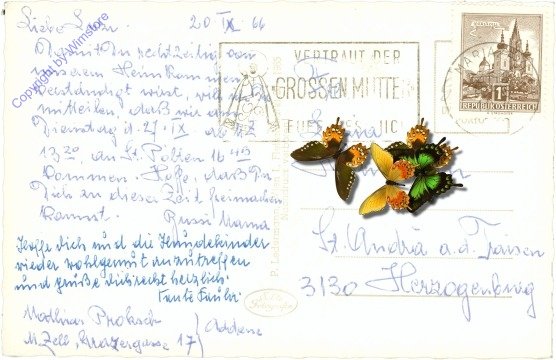 20 IX 66
Liebe
Damit Du rechtzeitig von
unserem Heimkommen
verständigt wirst, will ich Dir
mitteilen, daß wir am
Dienstag d. 27. IX ab
13 20 an St. Pölten 16 49
kommen. Hoffe, daß Du
Dich zu dieser Zeit freimachen
kannst. Bussi Mama
Hoffe Dich und die Hundekinder
wieder wohlgemut anzutreffen
und grüße dich recht herzlich
Tante
Mathias Proksch
M. Zell, Grazergasse 17) Addresse
Copyright by Wimstore
VERTRAUT DER
GROSSEN MUTTER
MARIAZELL
1S
REPUBLIK ÖSTERREICH
St. Andrä a. d. Traisen
3130 Herzogenburg